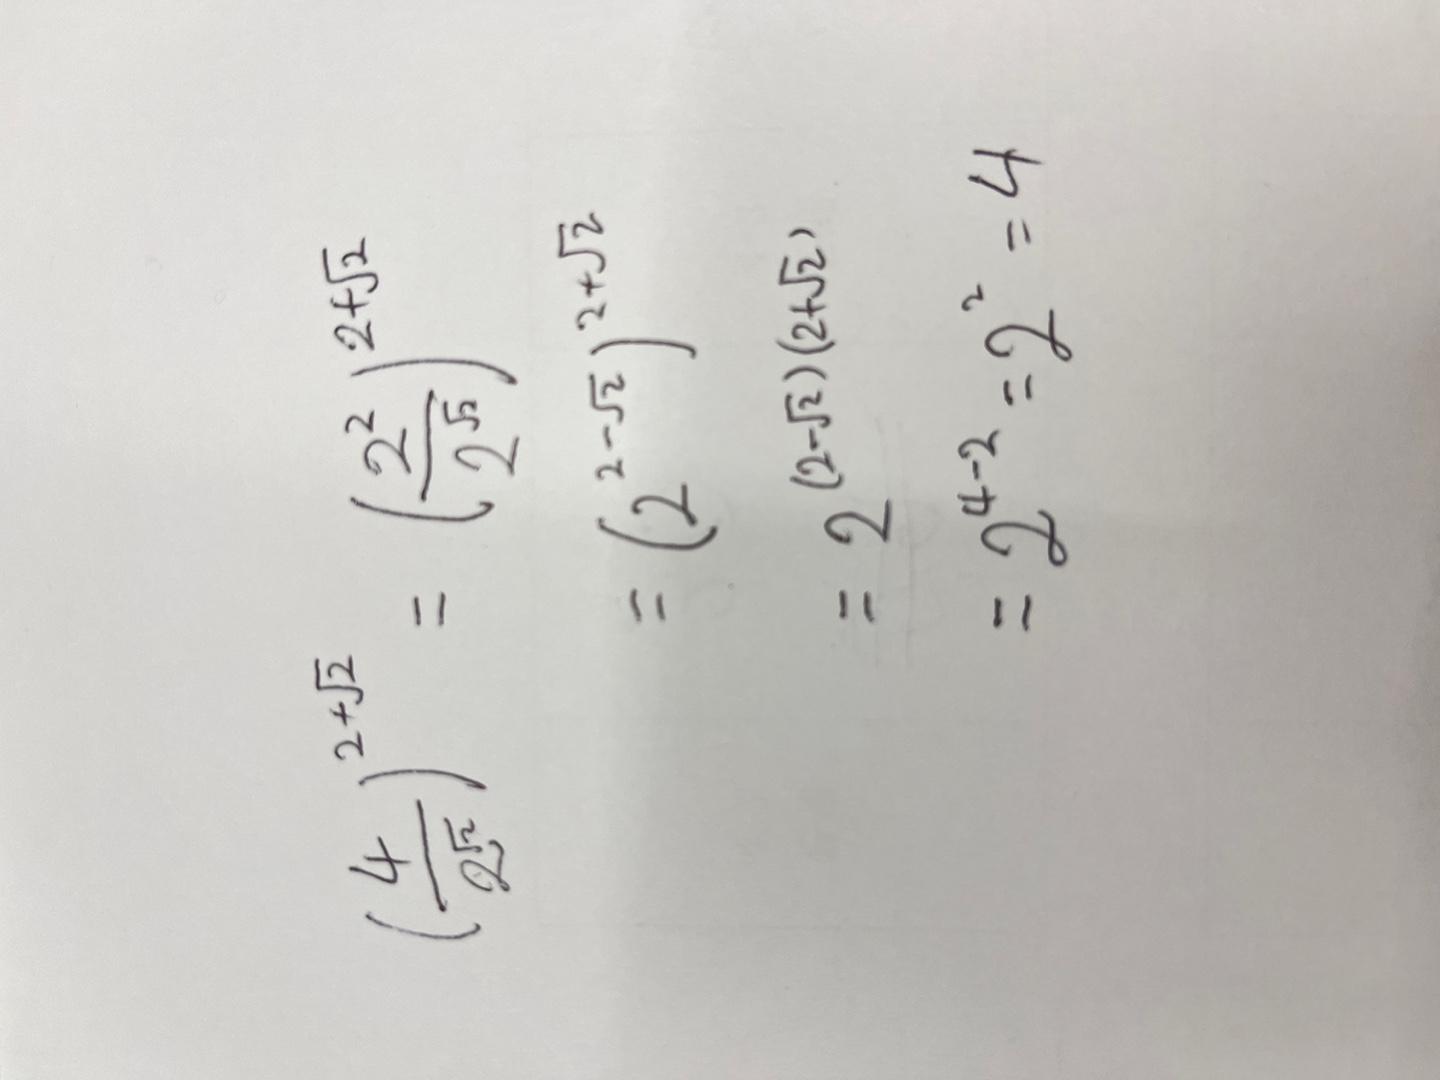 (4/2^√2)^2+√2 = (2^2/2^√2)^2+√2
= (2^2-√2)^2+√2
= 2^(2-√2)(2+√2)
= 2^4-2 = 2^2 = 4